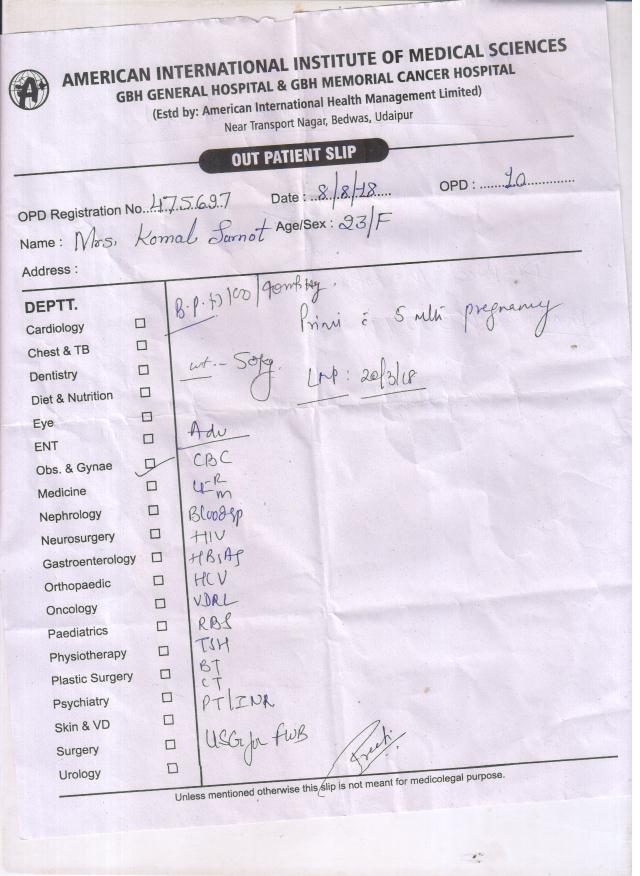 AMERICAN INTERNATIONAL INSTITUTE OF MEDICAL SCIENCES
GBH GENERAL HOSPITAL & GBH MEMORIAL CANCER HOSPITAL
(Estd by: American International Health Management Limited)
Near Transport Nagar, Bedwas, Udaipur
OUT PATIENT SLIP
OPD Registration No...475697 Date : ..8/8/18.... OPD : ......10..............
Name : Mrs. Komal Age/Sex : 23/F
Address :
DEPTT.
B.P. 100
Primi 5 mth pregnancy
Cardiology
Chest & TB
Dentistry
wt - 50kg.
LMP : 20/3/18
Diet & Nutrition
Eye
Adv
ENT
Obs. & Gynae
CBC
Medicine
Nephrology
Neurosurgery
HIV
Gastroenterology
HBsAg
Orthopaedic
HCV
Oncology
VDRL
Paediatrics
RBS
Physiotherapy
TSH
Plastic Surgery
BT
CT
Psychiatry
PT/INR
Skin & VD
USG for FWB
Surgery
Urology
Unless mentioned otherwise this slip is not meant for medicolegal purpose.